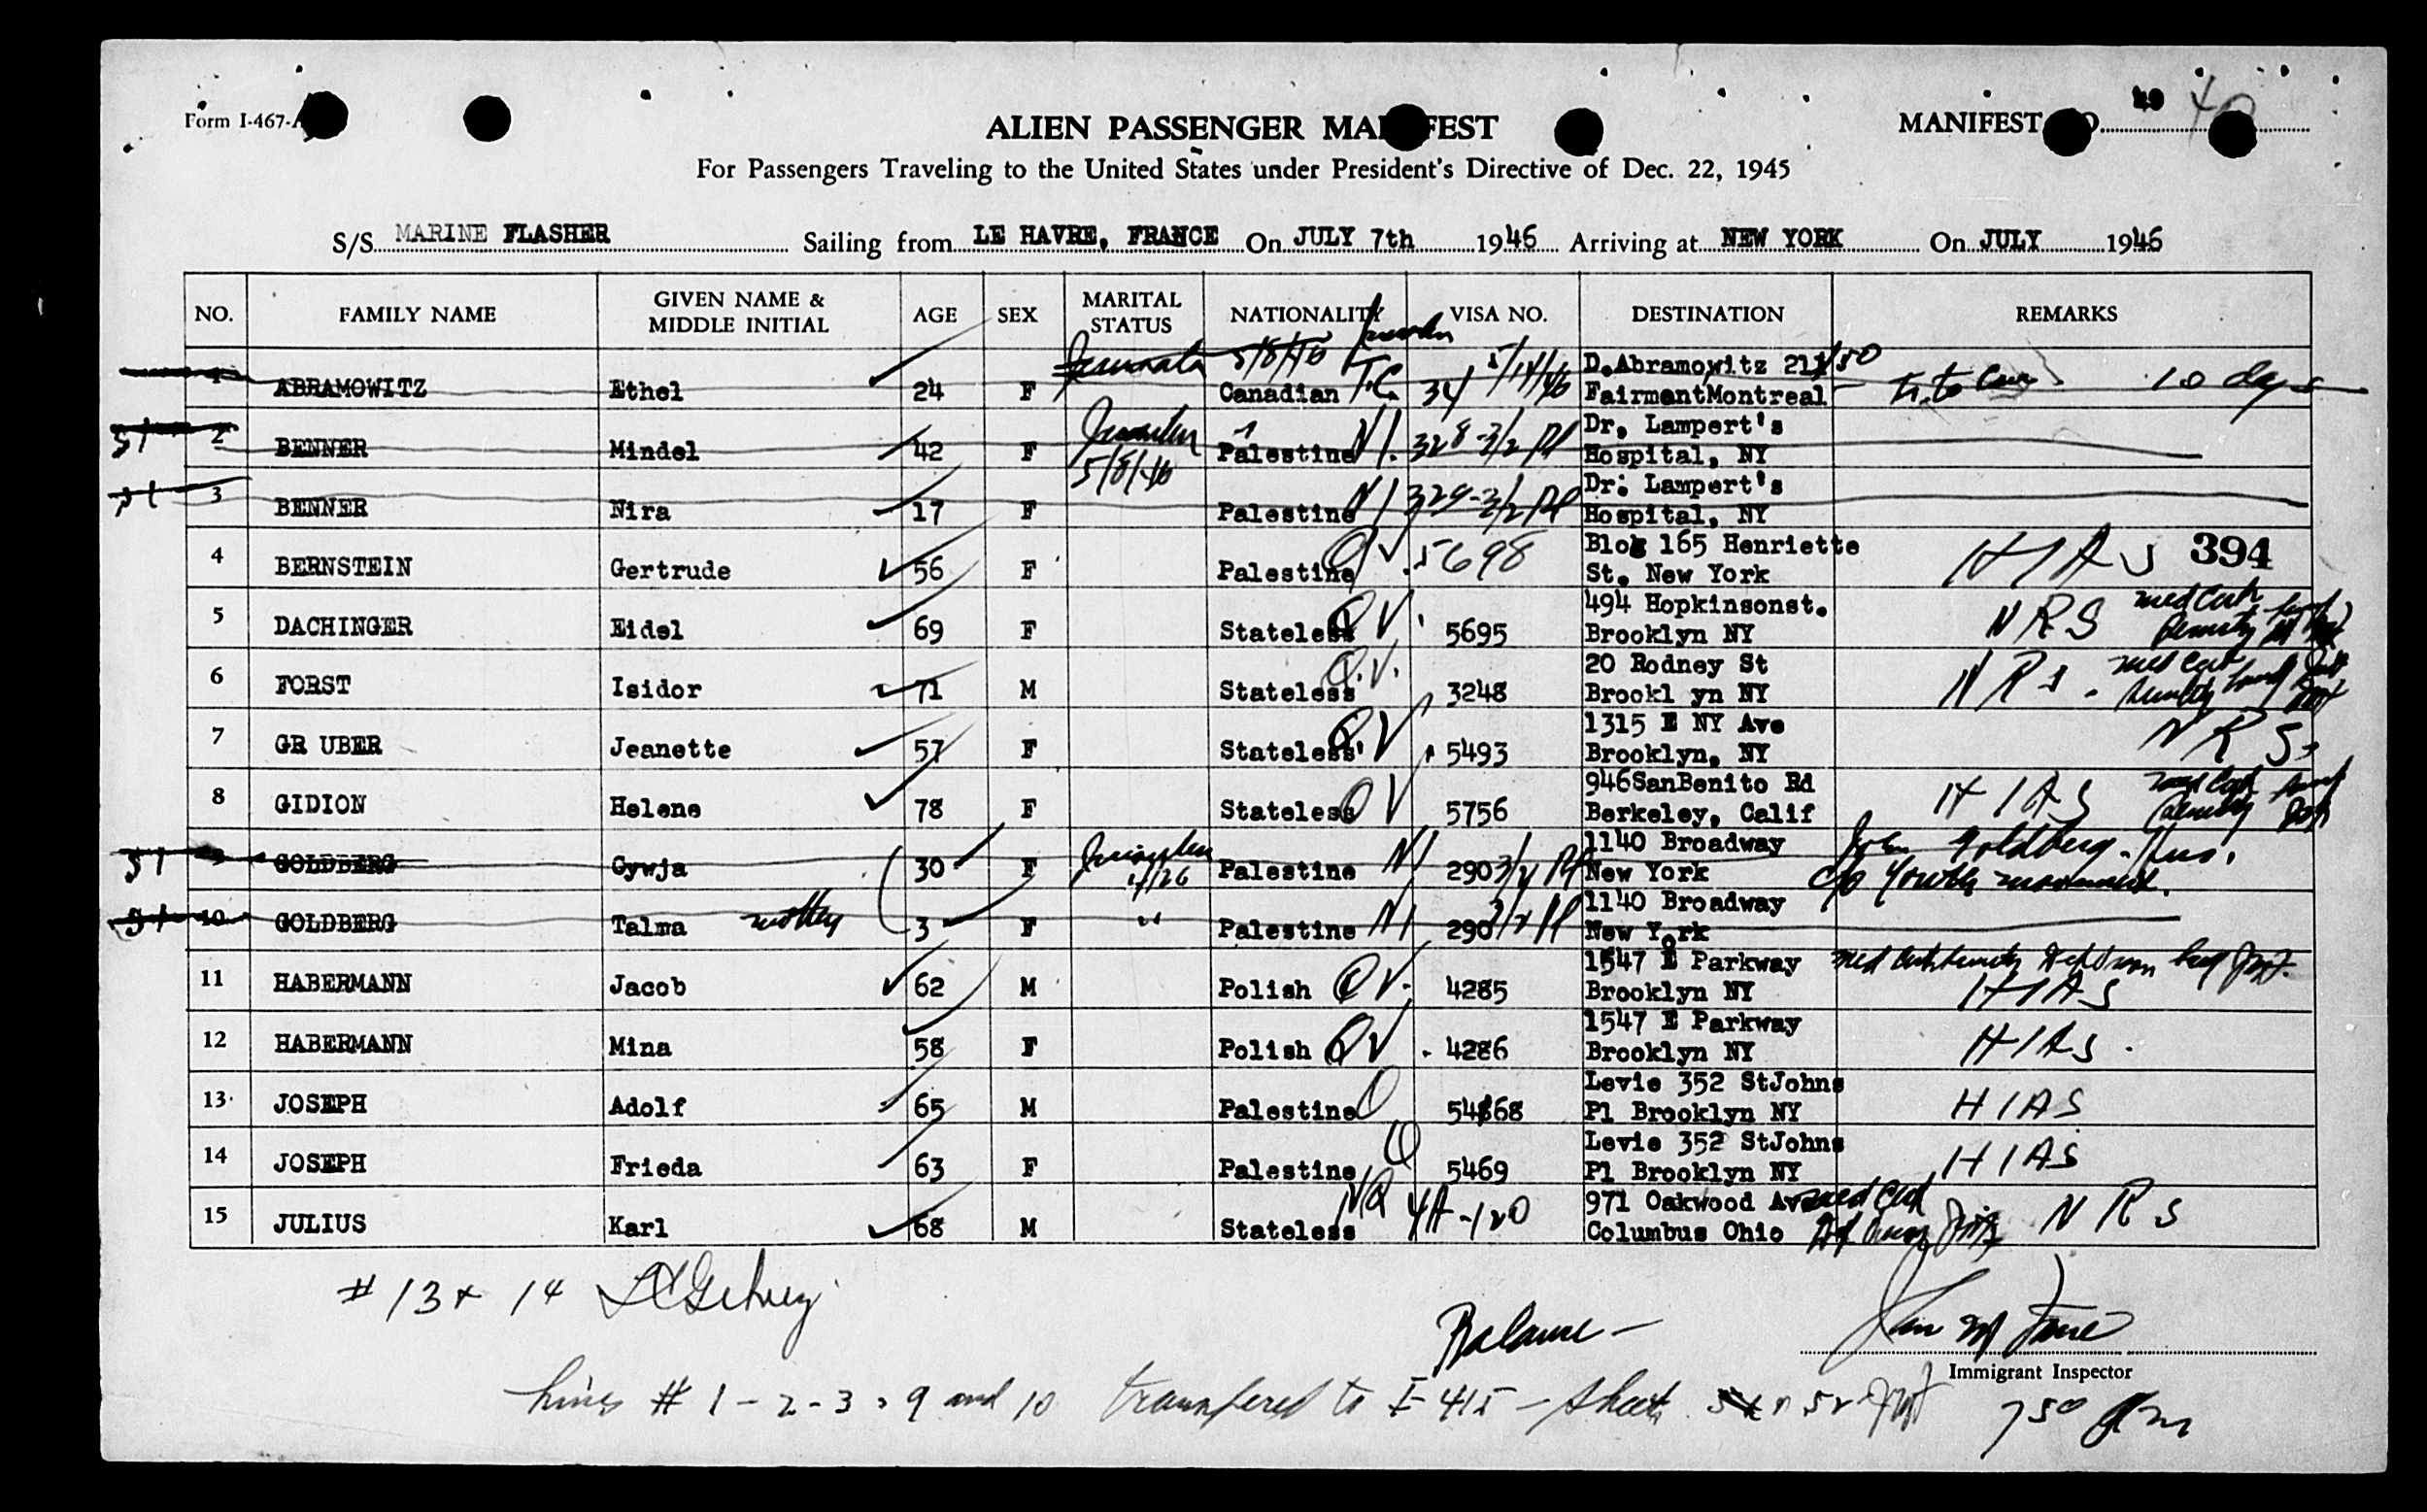 Form I-467-
49
40
ALIEN PASSENGER MA FEST
MANIFEST O.
For Passengers Traveling to the United States under President's Directive of Dec. 22, 1945
S/S MARINE FLASHER Sailing from LE HAVRE, FRANCE On JULY 7th 1946 Arriving at NEW YORK On JULY 1946
NO. FAMILY NAME GIVEN NAME & MIDDLE INITIAL AGE SEX MARITAL STATUS NATIONALITY VISA NO. DESTINATION REMARKS
5/8/46 London 5/14/46
1 ABRAMOWITZ Ethel 24 F Canadian T.C. 34 D.Abramowitz 211 50 FairmontMontreal Tr. to Can 10 days
51 2 BENNER Mindel 42 F 5/8/46 Palestine NI. 328-3/2 Dr. Lampert's Hospital, NY
51 3 BENNER Nira 17 F Palestine NI 329-3/2 Dr. Lampert's Hospital, NY
4 BERNSTEIN Gertrude 56 F Palestine QV 5698 Blog 165 Henriette St. New York HIAS 394
5 DACHINGER Eidel 69 F Stateless QV 5695 494 Hopkinsonst. Brooklyn NY NRS med Cert senility
6 FORST Isidor 71 M Stateless Q.V. 3248 20 Rodney St Brookl yn NY NRS. med Cert senility
7 GR UBER Jeanette 57 F Stateless QV 5493 1315 E NY Ave Brooklyn, NY NRS
8 GIDION Helene 78 F Stateless QV 5756 946SanBenito Rd Berkeley, Calif HIAS med Cert senility
51 9 GOLDBERG Cywja 30 F 4/26 Palestine NI 290 3/2 1140 Broadway New York John Goldberg - Hus. c/o Youth movement.
51 10 GOLDBERG Talma mother 3 F " Palestine NI 290 3/2 1140 Broadway New York
11 HABERMANN Jacob 62 M Polish QV. 4285 1547 E Parkway Brooklyn NY med Cert HIAS
12 HABERMANN Mina 58 F Polish QV. 4286 1547 E Parkway Brooklyn NY HIAS.
13 JOSEPH Adolf 65 M Palestine Q 54868 Levie 352 StJohns Pl Brooklyn NY HIAS
14 JOSEPH Frieda 63 F Palestine Q 5469 Levie 352 StJohns Pl Brooklyn NY HIAS
15 JULIUS Karl 68 M Stateless NQ 4A-120 971 Oakwood Ave Columbus Ohio med Cert NRS
# 13 + 14
Balance -
Immigrant Inspector
Lines # 1 - 2 - 3 , 9 and 10 transfered to I-415 - Sheet 52
750